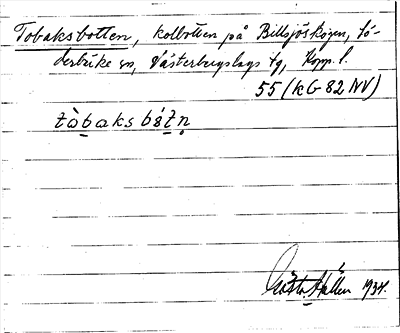 Tobaksbotten, kolbotten på Billsjöskogen, Sö-
derbärke sn, Västerbergslags tg, Kopp. l.
55 (kG 82 NV)
tò̀baks bót̀n
Gösta Hallén 1934.